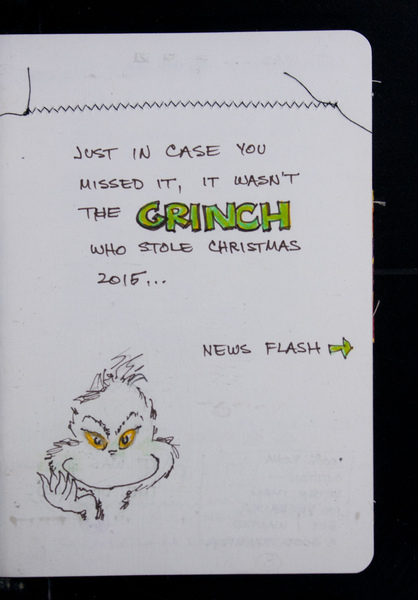 JUST IN CASE YOU
MISSED IT, IT WASN'T
THE GRINCH
WHO STOLE CHRISTMAS
2015...
NEWS FLASH